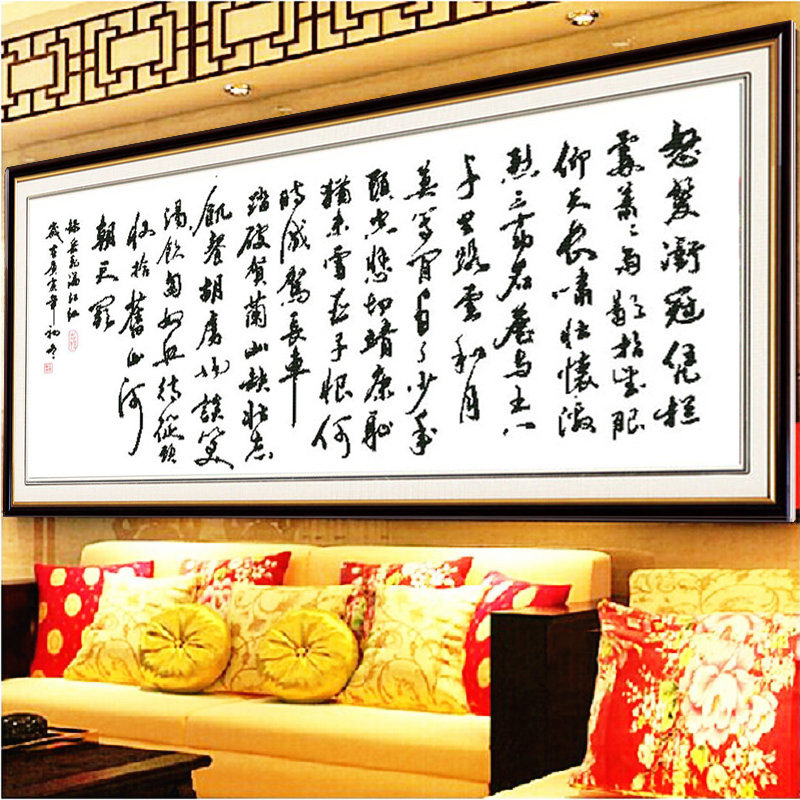 怒髮衝冠凭栏
處蕭〻雨歇抬望眼
仰天長嘯壯懷激
烈三十功名塵與土八
千里路雲和月
莫等閒白了少年
頭空悲切靖康恥
猶未雪臣子恨何
時滅駕長車
踏破賀蘭山缺壯志
飢餐胡虜肉談笑
渴飲匈奴血待從頭
收拾舊山河
朝天闕
錄岳飛滿江紅
庚寅年初